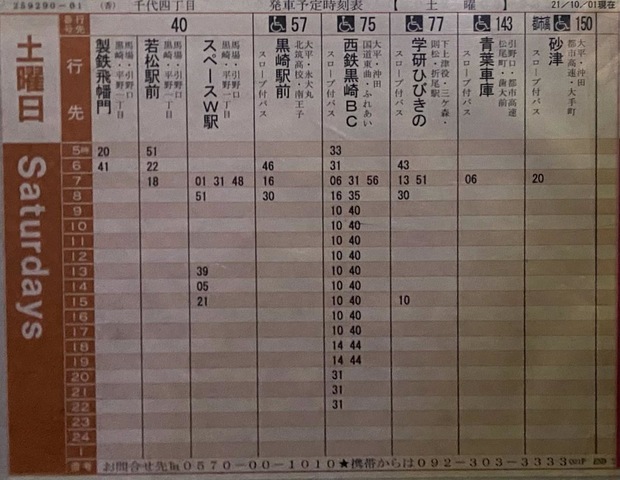 259290-01 (香) 千代四丁目 発車予定時刻表 【 土 曜 】 21/10/01現在
番号 行先
40
57
75
77
143
都市高 150
土曜日
Saturdays
行先
製鉄飛幡門
黒崎・平野一丁目
若松駅前
馬場・引野口
黒崎・平野一丁目
スペースW駅
馬場・引野口
黒崎・平野一丁目
黒崎駅前
大平・永犬丸
北筑高校・南王子
スロープ付バス
西鉄黒崎BC
大平・沖田
国道東曲・ふれあい
スロープ付バス
学研ひびきの
下上津役・三ケ森・
則松・折尾駅
スロープ付バス
青葉車庫
引野口・都市高速
松尾町・歯大前
スロープ付バス
砂津
大平・沖田
都市高速・大手町
スロープ付バス
5時 20 51 33
6 41 22 46 31 43
7 18 01 31 48 16 06 31 56 13 51 06 20
8 51 30 16 35 30
9 10 40
10 10 40
11 10 40
12 10 40
13 39 10 40
14 05 10 40
15 21 10 40 10
16 10 40
17 10 40
18 14 44
19 14 44
20 31
21 31
22 31
23
24
1
備考 お問合せ先℡0570-00-1010★携帯からは092-303-3333